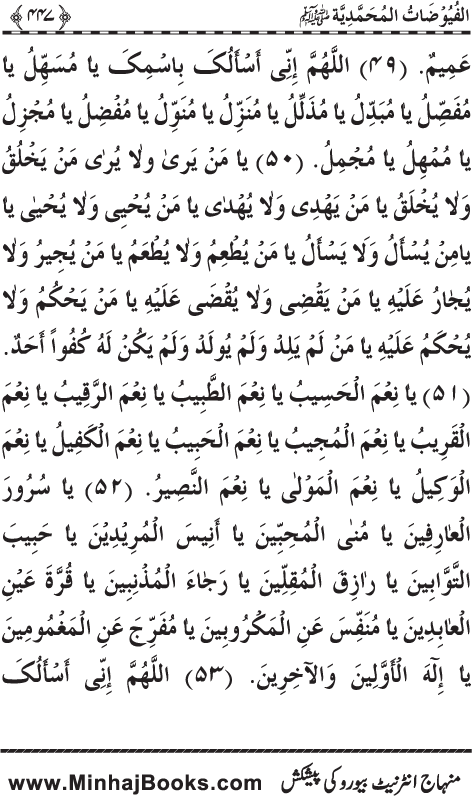 ﴿۴۴۷﴾ الفُیُوۡضَاتُ المُحَمَّدِیَّة ﷺ
عَمِیمٌ. (۴۹) اَللّٰهُمَّ إِنِّی أَسۡأَلُکَ بِاسۡمِکَ یا مُسَهِّلُ یا
مُفَصِّلُ یا مُبَدِّلُ یا مُذَلِّلُ یا مُنَزِّلُ یا مُنَوِّلُ یا مُفۡضِلُ یا مُجۡزِلُ
یا مُمۡهِلُ یا مُجۡمِلُ. (۵۰) یا مَنۡ یَریٰ ولا یُریٰ مَنۡ یَخۡلُقُ
وَلا یُخۡلَقُ یا مَنۡ یَهۡدِی وَلا یُهۡدٰی یا مَنۡ یُحۡیِی وَلا یُحۡیٰی یا
یامِنۡ یُسۡأَلُ وَلَا یَسۡأَلُ یا مَنۡ یُطۡعِمُ وَلا یُطۡعَمُ یا مَنۡ یُجِیرُ وَلا
یُجَارُ عَلَیۡهِ یا مَنۡ یَقۡضِی وَلا یُقۡضَی عَلَیۡهِ یا مَنۡ یَحۡکُمُ وَلا
یُحۡکَمُ عَلَیۡهِ یا مَنۡ لَمۡ یَلِدۡ وَلَمۡ یُولَدۡ وَلَمۡ یَکُنۡ لَهُ کُفُواً أَحَدٌ.
(۵۱) یا نِعۡمَ الۡحَسِیبُ یا نِعۡمَ الطَّبِیبُ یا نِعۡمَ الرَّقِیبُ یا نِعۡمَ
الۡقَرِیبُ یا نِعۡمَ الۡمُجِیبُ یا نِعۡمَ الۡحَبِیبُ یا نِعۡمَ الۡکَفِیلُ یا نِعۡمَ
الۡوَکِیلُ یا نِعۡمَ الۡمَوۡلٰی یا نِعۡمَ النَّصِیرُ. (۵۲) یا سُرُورَ
الۡعَارِفِینَ یا مُنٰی الۡمُحِبِّینَ یا أَنِیسَ الۡمُرِیۡدِیۡنَ یا حَبِیبَ
التَّوَّابِینَ یا رَازِقَ الۡمُقِلِّینَ یا رَجَاءَ الۡمُذۡنِبِینَ یا قُرَّةَ عَیۡنِ
الۡعَابِدِینَ یا مُنَفِّسَ عَنِ الۡمَکۡرُوبِینَ یا مُفَرِّجَ عَنِ الۡمَغۡمُومِینَ
یا إِلٰهَ الۡأَوَّلِینَ وَالۡآخِرِینَ. (۵۳) اللَّهُمَّ إِنِّی أَسۡأَلُکَ
منہاج انٹرنیٹ بیورو کی پیشکش www.MinhajBooks.com